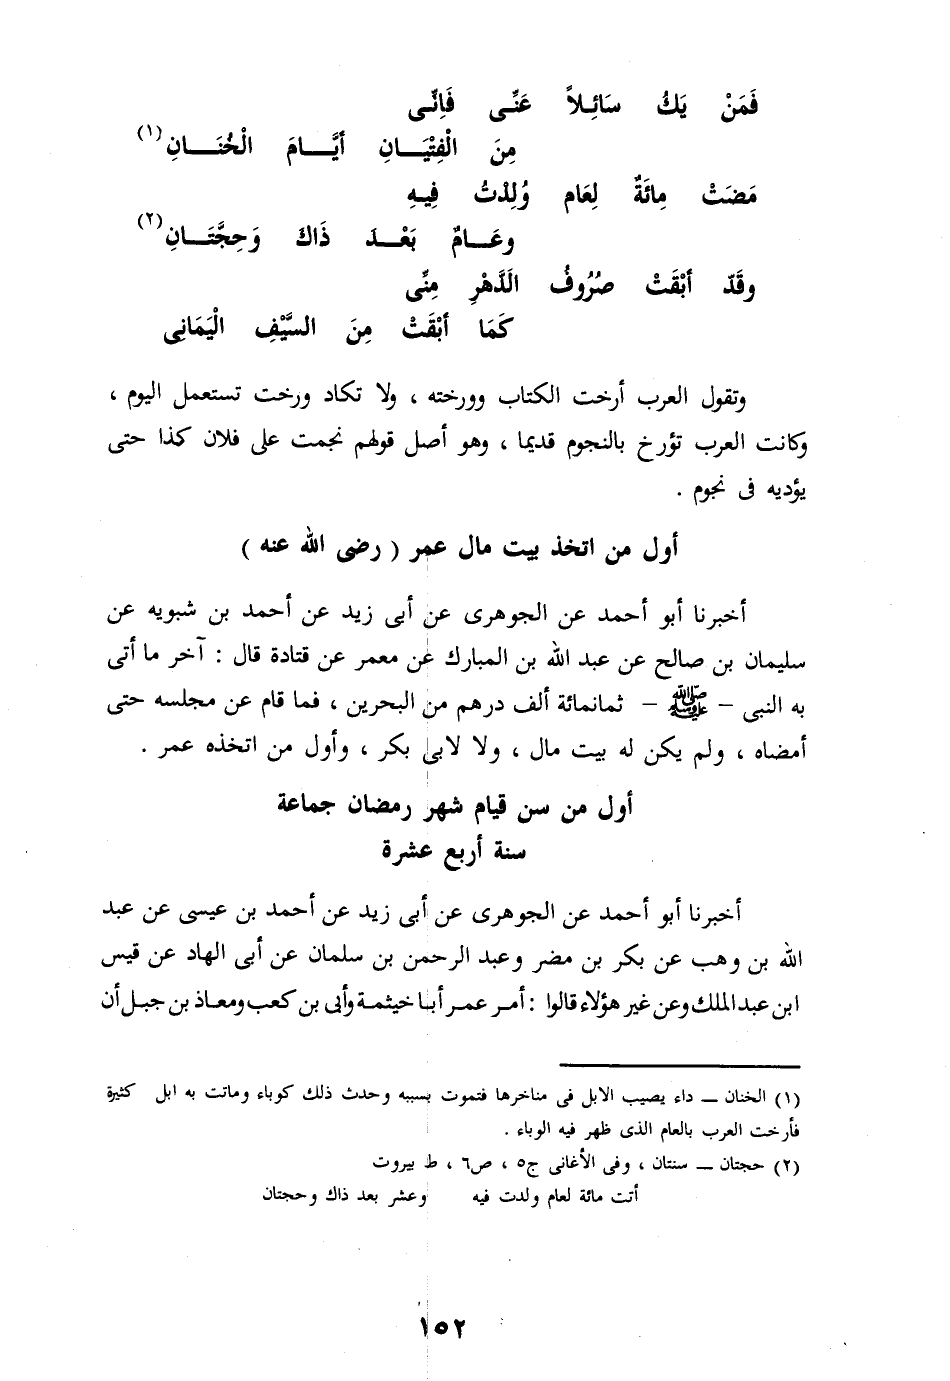 فَمَنْ يَكُ سَائِلاً عَنِّى فَإِنِّى
مِنَ الْفِتْيَـــانِ أَيَّــامَ الْخُنَــانِ (١)
مَضَتْ مِائَةٌ لِعَام وُلِدْتُ فِيهِ
وعَـــامٌ بَعْـــدَ ذَاكَ وَحِجَّتَـــانِ (٢)
وقَدّ أَبْقَتْ صُرُوفُ الَدَّهْرِ مِنِّى
كَمَا أَبْقَتْ مِنَ السَّيْفِ الْيَمَانِى
وتقول العرب أرخت الكتاب وورخته ، ولا تكاد ورخت تستعمل اليوم ،
وكانت العرب تؤرخ بالنجوم قديما ، وهو أصل قولهم نجمت على فلان كذا حتى
يؤديه فى نجوم .
أول من اتخذ بيت مال عمر ( رضى الله عنه )
أخبرنا أبو أحمد عن الجوهرى عن أبى زيد عن أحمد بن شبويه عن
سليمان بن صالح عن عبد الله بن المبارك عن معمر عن قتادة قال : آخر ما أتى
به النبى – ﷺ – ثمانمائة ألف درهم من البحرين ، فما قام عن مجلسه حتى
أمضاه ، ولم يكن له بيت مال ، ولا لابى بكر ، وأول من اتخذه عمر .
أول من سن قيام شهر رمضان جماعة
سنة أربع عشرة
أخبرنا أبو أحمد عن الجوهرى عن أبى زيد عن أحمد بن عيسى عن عبد
الله بن وهب عن بكر بن مضر وعبد الرحمن بن سلمان عن أبى الهاد عن قيس
ابن عبد الملك وعن غير هؤلاء قالوا : أمر عمر أبا خيثمة وأبى بن كعب ومعاذ بن جبل أن
(١) الخنان ــ داء يصيب الابل فى مناخرها فتموت بسببه وحدث ذلك كوباء وماتت به ابل كثيرة
فأرخت العرب بالعام الذى ظهر فيه الوباء .
(٢) حجتان ــ سنتان ، وفى الأغانى ج٥ ، ص٦ ، ط بيروت
أتت مائة لعام ولدت فيه وعشر بعد ذاك وحجتان
١٥٢